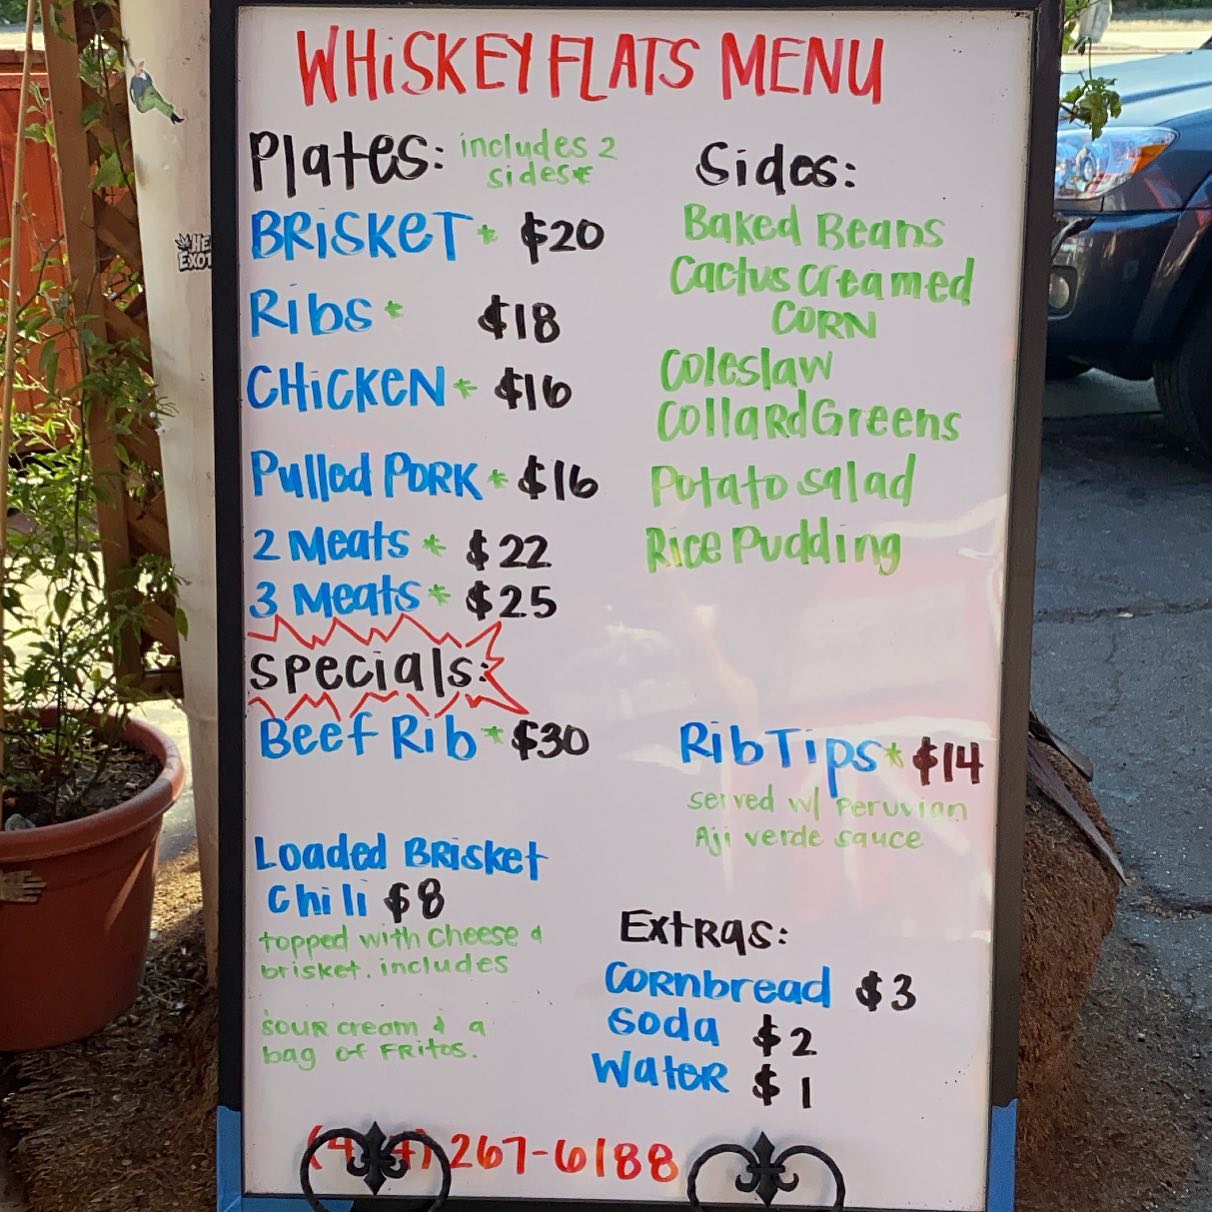 WHiSKEY FLATS MENU
Plates: includes 2
sides*
BRiSKET * $20
Ribs * $18
CHiCKEN * $16
Pulled PORK * $16
2 Meats * $22
3 Meats * $25
Specials:
Beef Rib * $30
Loaded BRisket
Chili $8
topped with cheese &
brisket. includes
sour cream & a
bag of FRitos.
Sides:
Baked Beans
Cactus creamed
CORN
Coleslaw
CollaRd Greens
Potato salad
Rice Pudding
Rib Tips * $14
served w/ Peruvian
Aji verde sauce
Extras:
Cornbread $3
Soda $2
Water $1
267-6188